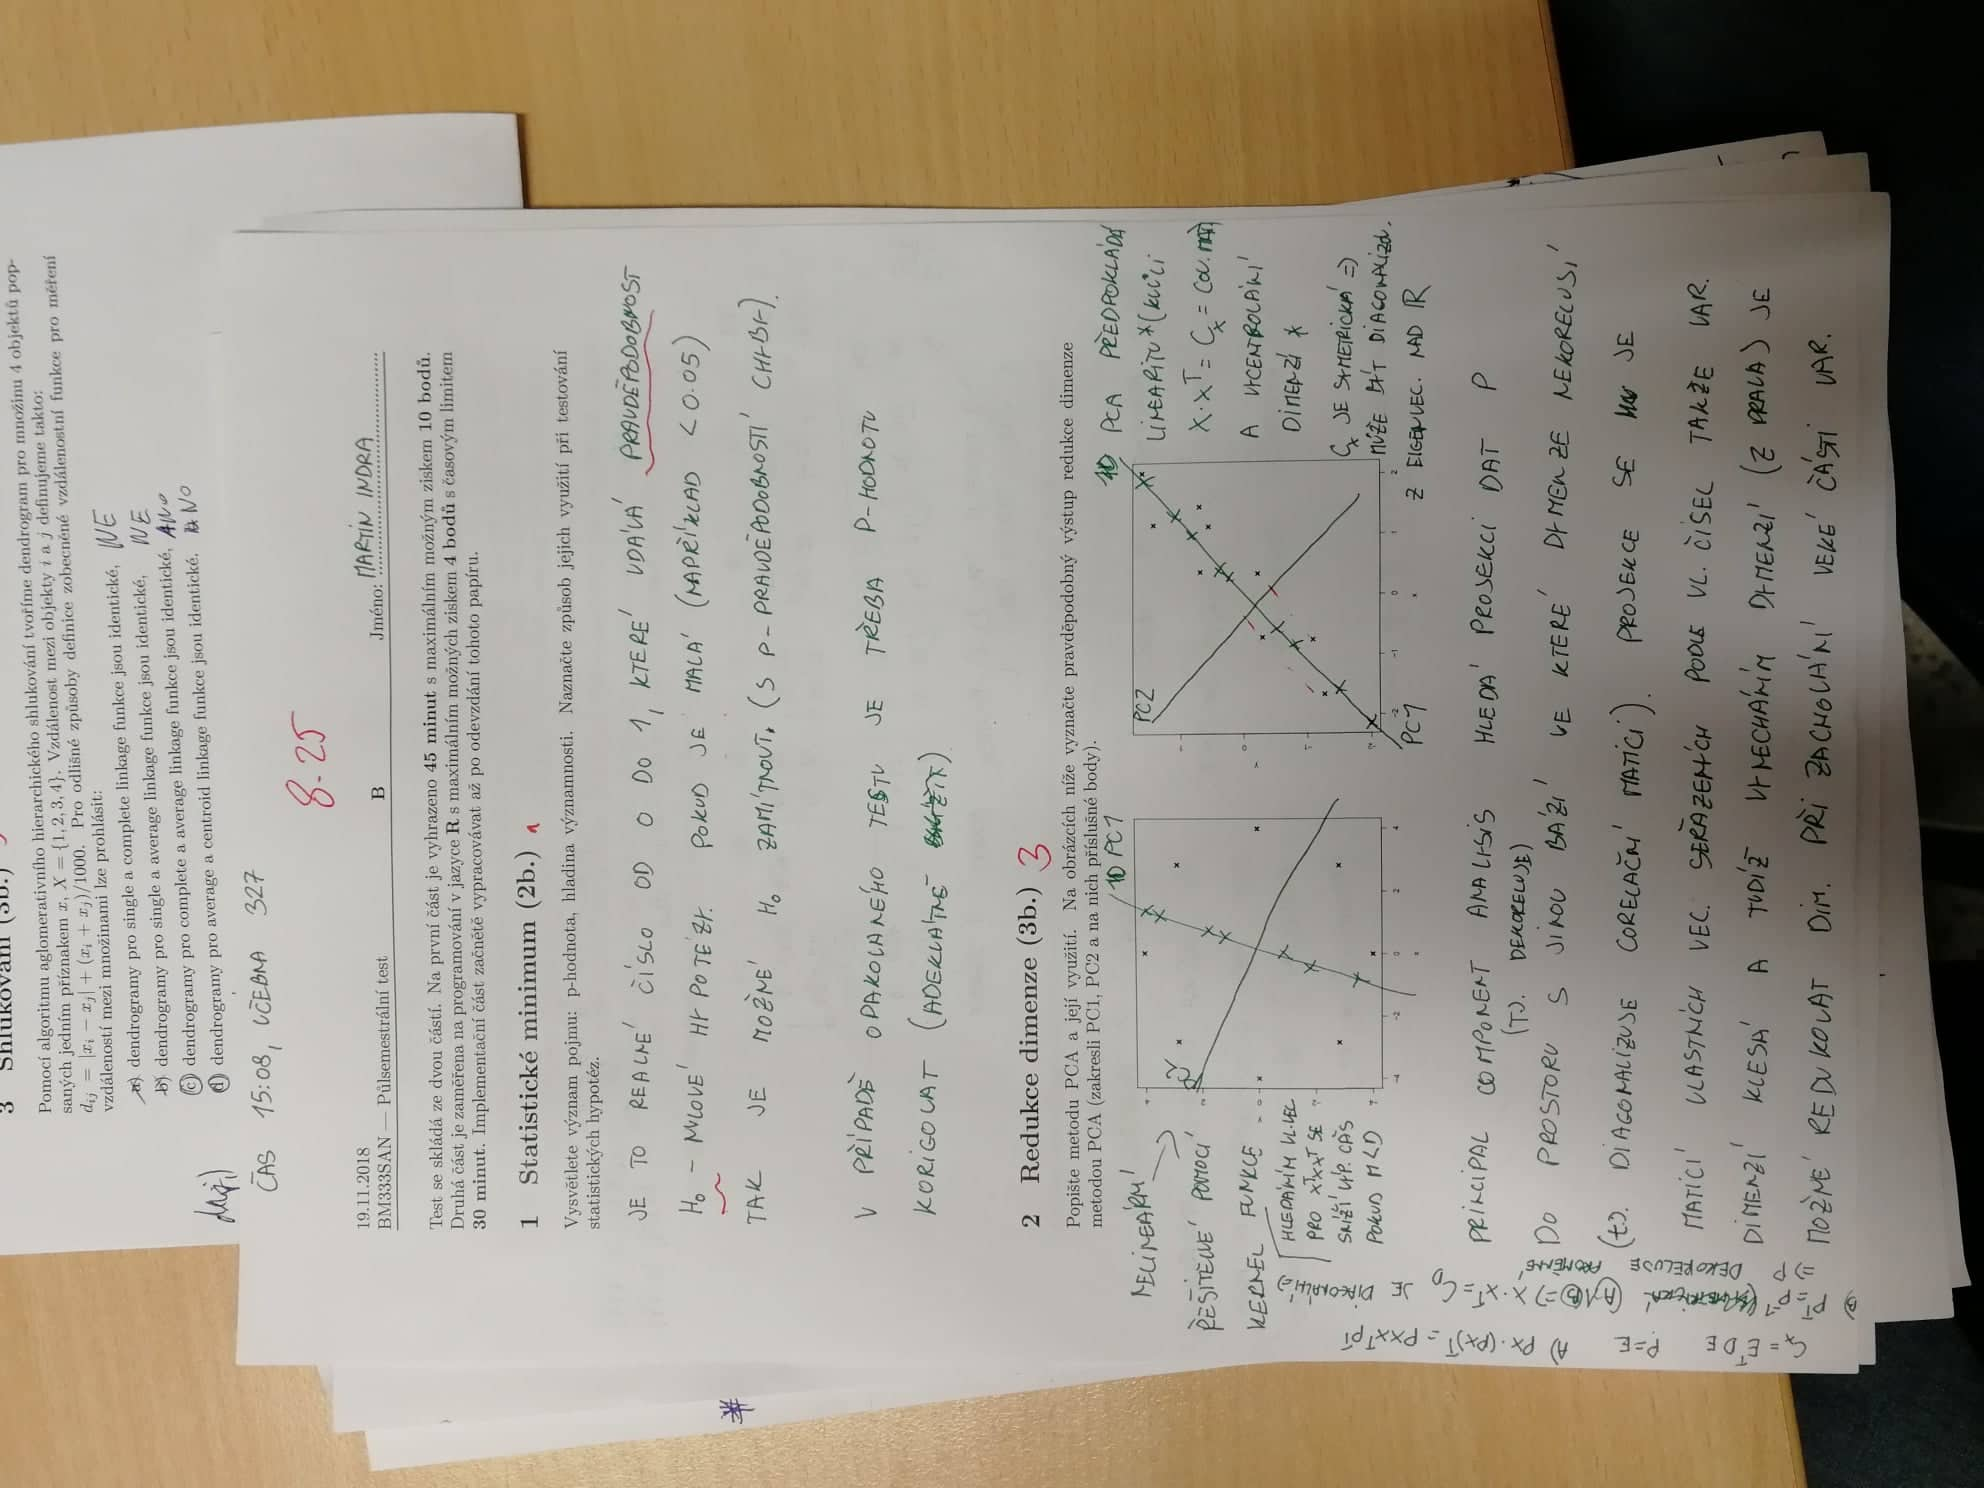 3 Shlukování (3b.)
Pomocí algoritmu aglomerativního hierarchického shlukování tvoříme dendrogram pro množinu 4 objektů pop-
saných jedním příznakem x, X = {1, 2, 3, 4}. Vzdálenost mezi objekty i a j definujeme takto:
d_ij = |x_i − x_j| + (x_i + x_j)/1000. Pro odlišné způsoby definice zobecněné vzdálenostní funkce pro měření
vzdáleností mezi množinami lze prohlásit:
a) dendrogramy pro single a complete linkage funkce jsou identické, NE
b) dendrogramy pro single a average linkage funkce jsou identické, NE
c) dendrogramy pro complete a average linkage funkce jsou identické, ANO
d) dendrogramy pro average a centroid linkage funkce jsou identické. ANO
ČAS 15:08, UČEBNA 327
8.25
19.11.2018
BM333SAN — Půlsemestrální test B Jméno: MARTIN INDRA
Test se skládá ze dvou částí. Na první část je vyhrazeno 45 minut s maximálním možným ziskem 10 bodů.
Druhá část je zaměřena na programování v jazyce R s maximálním možných ziskem 4 bodů s časovým limitem
30 minut. Implementační část začněte vypracovávat až po odevzdání tohoto papíru.
1 Statistické minimum (2b.) 1
Vysvětlete význam pojmu: p-hodnota, hladina významnosti. Naznačte způsob jejich využití při testování
statistických hypotéz.
JE TO REALNÉ ČÍSLO OD 0 DO 1, KTERÉ UDÁLÁ PRAVDĚPODOBNOST
H0 - NULOVÉ HYPOTÉZY. POKUD JE MALÁ (NAPŘÍKLAD < 0.05)
TAK JE MOŽNÉ H0 ZAMÍTNOUT. (S P-PRAVDĚPODOBNOSTÍ CHYBY).
V PŘÍPADĚ OPAKOVANÉHO TESTU JE TŘEBA P-HODNOTU
KORIGOVAT (ADEKVÁTNĚ).
2 Redukce dimenze (3b.) 3
Popište metodu PCA a její využití. Na obrázcích níže vyznačte pravděpodobný výstup redukce dimenze
metodou PCA (zakresli PC1, PC2 a na nich příslušné body).
NELINEÁRNÍ
ŘEŠITELNÉ POMOCÍ
KERNEL FUNKCE
HLEDÁNÍM VL.VEC
PRO XᵀX XXᵀ SE
SNÍŽÍ VÝP. ČAS
POKUD M<D
1D PC1
4
2
0
-2
-4
y
-4 -2 0 2 4
x
PC2
PC1
1D
1
0
-1
-2
y
-2 -1 0 1 2
x
PCA PŘEDPOKLÁDÁ
LINEARITU* (KVŮLI
X·Xᵀ = Cₓ = COV. MAT)
A VYCENTROVÁNÍ
DIMENZÍ *
Cₓ JE SYMETRICKÁ =>
MŮŽE BÝT DIAGONALIZOV.
Z EIGENVEC. NAD ℝ
PRINCIPAL COMPONENT ANALYSIS HLEDÁ PROJEKCI DAT P
(TJ. DEKORELUJE)
DO PROSTORU S JINOU BÁZÍ VE KTERÉ DIMENZE NEKORELUSÍ
(tj. DIAGONALIZUJE CORELAČNÍ MATICI). PROJEKCE SE JE
MATICÍ VLASTNÍCH VEC. SEŘAZENÝCH PODLE VL. ČÍSEL TAKŽE VAR.
DIMENZÍ KLESÁ A TUDÍŽ VYNECHÁNÍM DIMENZÍ (Z PRAVA) JE
MOŽNÉ REDUKOVAT DIM. PŘI ZACHOVÁNÍ VEKÉ ČÁSTI VAR.
Cₓ = EᵀDE P=E A) PX·(PX)ᵀ = PXXᵀPᵀ
B) Pᵀ = P⁻¹
A∧B => X·Xᵀ = C_D JE DIAGONÁLNÍ
=> P DEKORELUJE PROMĚNNÉ